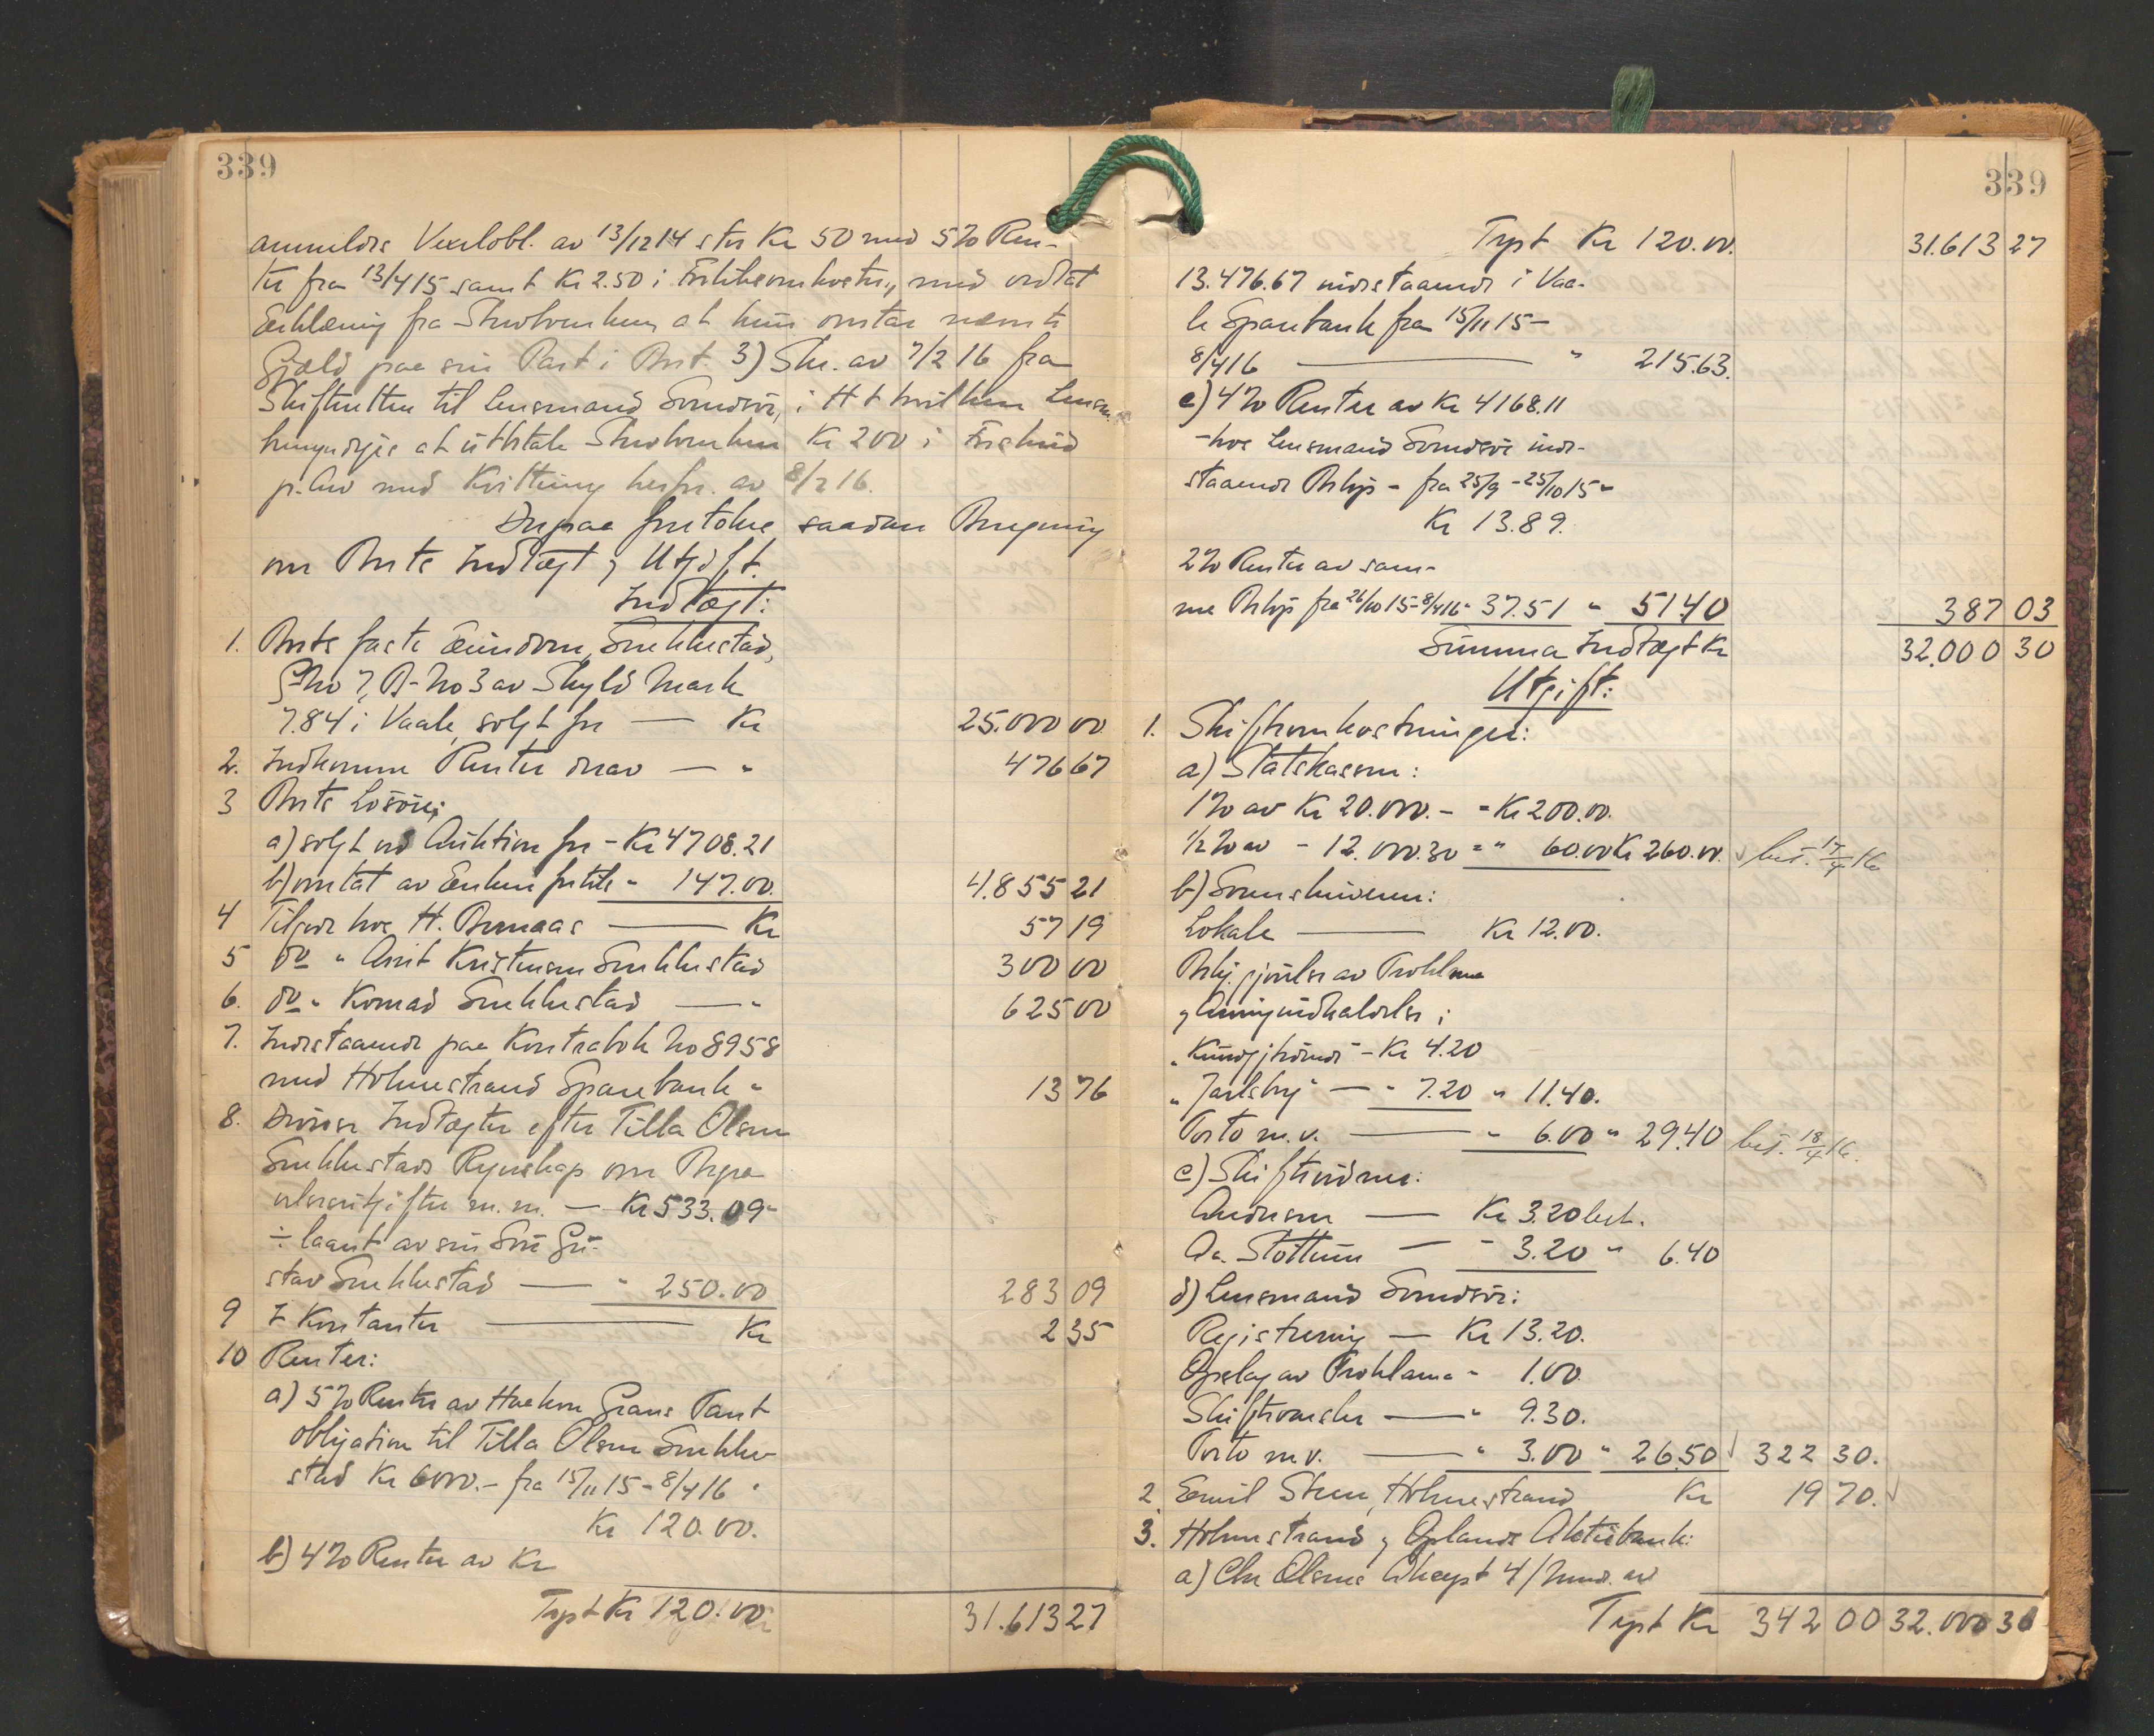 339
anmeldes Vexelobl. av 13/12 14 stor Kr 50 med 5% Ren-
ter fra 13/4 15 samt Kr 2.50 i med vedtat
Erklæring fra at hun nævnte
Gjæld paa sin Part i Boet. 3) Skr. av 7/2 16 fra
Skifteretten til Lensmand i H t hvilken Lensm.
at utbetale Kr 200 i Forskud
p. Arv med Kvittering herfor. av 8/2 16.
Derpaa foretokes saadan Beregning
over Boets Indtægt og Utgift.
Indtægt:
1. Boets faste Eiendom, Smukkestad,
G No 7, B-No 3 av Skyld Mark
7.84 i Vaale, solgt for — Kr 25.000 00
2. Indkomne Renter derav — " 476 67
3 Boets Løsøre:
a) solgt ved Auktion for - Kr 4708.21
b) overtat av Enken for tils " 147.00. 4.855 21
4 Tilgode hos H. — Kr 57 19
5 do " Kristensen Smukkestad 300 00
6. do " Konrad Smukkestad — " 625 00
7. Indestaaende paa Kontrabok No 8958
med Holmestrand Sparebank " 13 76
8. Diverse Indtægter efter Tilla Olsen
Smukkestads Regnskap over Begra
velsesutgifter m.m. — Kr 533.09
÷ laant av sin Søn Gu-
stav Smukkestad — " 250.00 283 09
9 I Kontanter — Kr 2 35
10 Renter:
a) 5% Renter av Haakon Grans Pant
obligation til Tilla Olsen Smukke-
stad Kr 6000.- fra 15/11 15 - 8/4 16
Kr 120.00.
b) 4% Renter av Kr
Transp. Kr 120.00 31.613 27
339
Transp. Kr 120.00. 31.613 27
13.476.67 indestaaende i Vaa-
le Sparebank fra 15/11 15 -
8/4 16 — " 215.63.
c) 4% Renter av Kr 4168.11
- hos Lensmand inde-
staaende Beløp - fra 25/9 - 25/10 15 -
Kr 13.89.
2% Renter av sam-
me Beløp fra 26/10 15 - 8/4 16 " 37.51 " 51.40 387 03
Summa Indtægt Kr 32.000 30
Utgift:
1. Skifteomkostninger:
a) Statskassen:
1% av Kr 20.000.- = Kr 200.00.
1/2% av - 12.000.30 = " 60.00 Kr 260.00. bet. 17/4 16
b) Sorenskriveren:
Lokale — Kr 12.00.
Bekjendtgjørelse av Proklama
og i
"Kundgjørelser" - Kr 4.20
"Jarlsberg" — " 7.20 " 11.40.
Porto m.v. — " 6.00 " 29.40 bet. 18/4 16.
c) Skiftevidner:
Andresen — Kr 3.20 bet.
— " 3.20 " 6.40
d) Lensmand
Registrering — Kr 13.20.
Opslag av Proklama " 1.00
— " 9.30.
Porto m.v. — " 3.00 " 26.50 322 30.
2. Emil Steen, Holmestrand Kr 19 70.
3. Holmestrand og Oplands Aktiebank:
a) Chr Olsens Aksept 4/Mnd. av
Transp. Kr 342 00 32.000 30